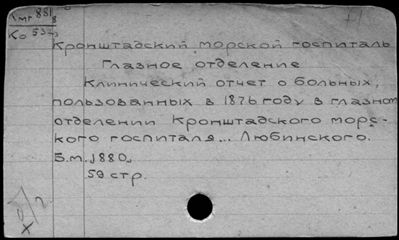 Кронштадский морской госпиталь
Глазное отделение
Клинический отчет о больных,
пользованных в 1876 году в глазном
отделении Кронштадского морс-
кого госпиталя... Любинского.
Б.м., 1880.
59 стр.